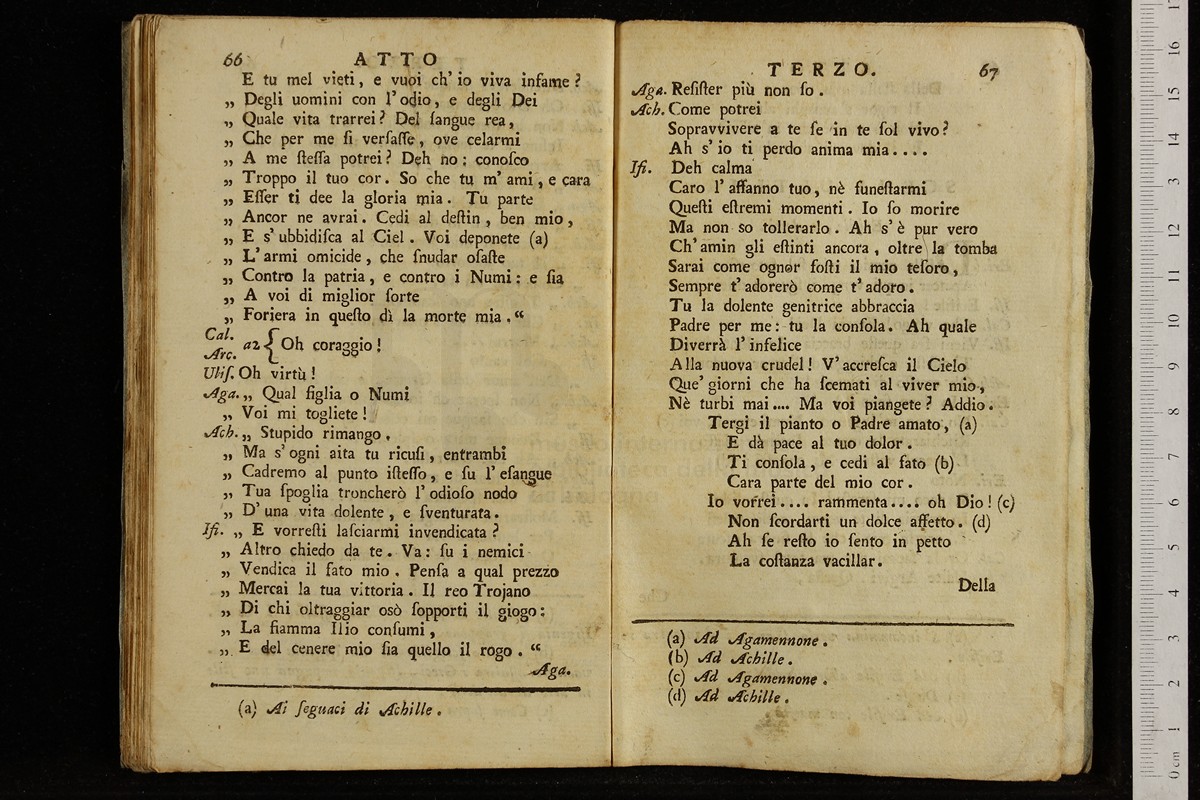 66 ATTO
E tu mel vieti, e vuoi ch' io viva infame?
„ Degli uomini con l'odio, e degli Dei
„ Quale vita trarrei? Del ſangue rea,
„ Che per me ſi verſaſſe, ove celarmi
„ A me ſteſſa potrei? Deh no: conoſco
„ Troppo il tuo cor. So che tu m' ami, e cara
„ Eſſer ti dee la gloria mia. Tu parte
„ Ancor ne avrai. Cedi al deſtin, ben mio,
„ E s' ubbidiſca al Ciel. Voi deponete (a)
„ L' armi omicide, che ſnudar oſaſte
„ Contro la patria, e contro i Numi: e ſia
„ A voi di miglior ſorte
„ Foriera in queſto dì la morte mia. “
Cal. Arc. a2 { Oh coraggio!
Uliſ. Oh virtù!
Aga. „ Qual figlia o Numi
„ Voi mi togliete!
Ach. „ Stupido rimango,
„ Ma s' ogni aita tu ricuſi, entrambi
„ Cadremo al punto iſteſſo, e ſu l' eſangue
„ Tua ſpoglia troncherò l' odioſo nodo
„ D' una vita dolente, e ſventurata.
Ifi. „ E vorreſti laſciarmi invendicata?
„ Altro chiedo da te. Va: ſu i nemici
„ Vendica il fato mio. Penſa a qual prezzo
„ Mercai la tua vittoria. Il reo Trojano
„ Di chi oltraggiar osò ſopporti il giogo:
„ La fiamma Ilio conſumi,
„ E del cenere mio ſia quello il rogo. “
Aga.
(a) Ai ſeguaci di Achille.
TERZO. 67
Aga. Reſiſter più non ſo.
Ach. Come potrei
Sopravvivere a te ſe in te ſol vivo?
Ah s' io ti perdo anima mia....
Ifi. Deh calma
Caro l' affanno tuo, nè funeſtarmi
Queſti eſtremi momenti. Io ſo morire
Ma non so tollerarlo. Ah s' è pur vero
Ch' amin gli eſtinti ancora, oltre la tomba
Sarai come ognor foſti il mio teſoro,
Sempre t' adorerò come t' adoro.
Tu la dolente genitrice abbraccia
Padre per me: tu la conſola. Ah quale
Diverrà l' infelice
Alla nuova crudel! V' accreſca il Cielo
Que' giorni che ha ſcemati al viver mio,
Nè turbi mai.... Ma voi piangete? Addio.
Tergi il pianto o Padre amato, (a)
E dà pace al tuo dolor.
Ti conſola, e cedi al fato (b)
Cara parte del mio cor.
Io vorrei.... rammenta.... oh Dio! (c)
Non ſcordarti un dolce affetto. (d)
Ah ſe reſto io ſento in petto
La coſtanza vacillar.
Della
(a) Ad Agamennone.
(b) Ad Achille.
(c) Ad Agamennone.
(d) Ad Achille.
0 cm 1 2 3 4 5 6 7 8 9 10 11 12 13 14 15 16 17